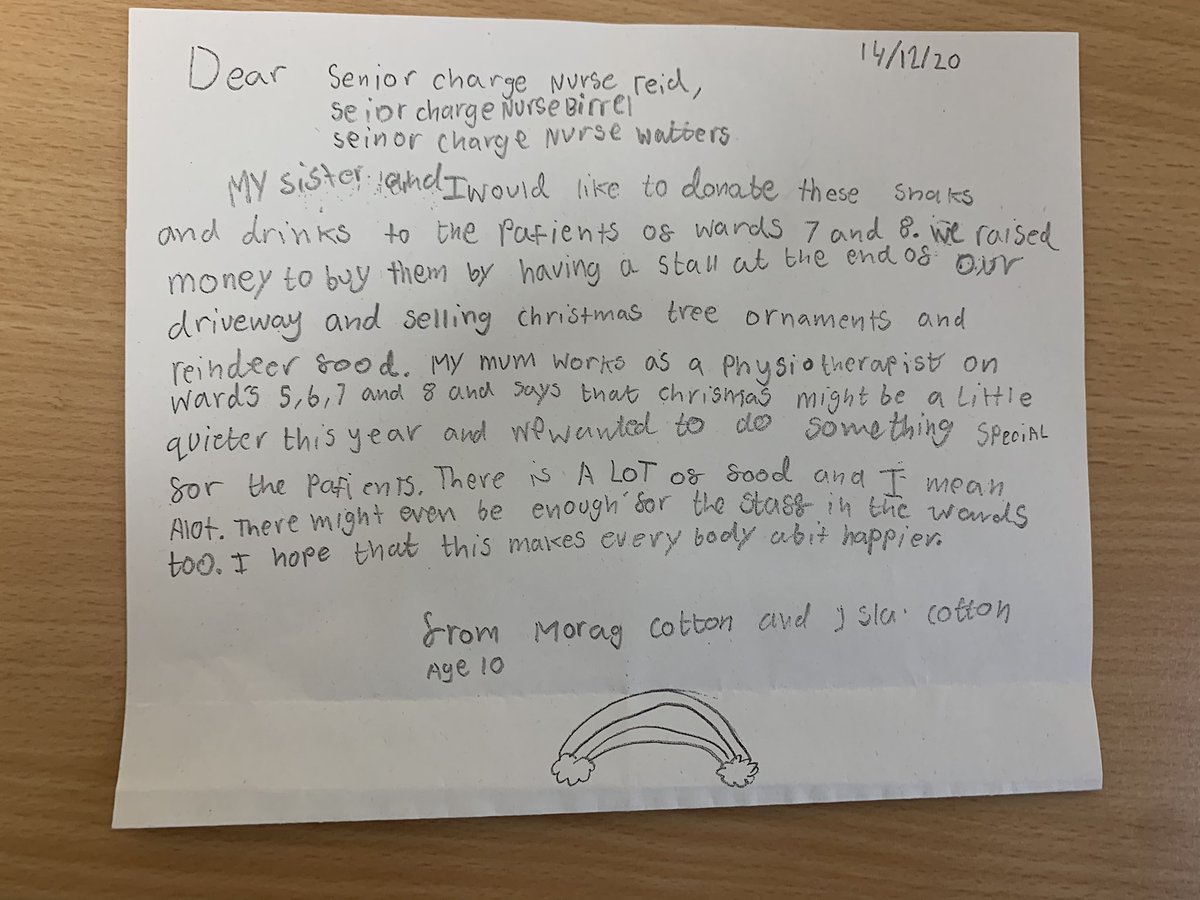 14/12/20
Dear Senior charge Nurse reid,
seior charge Nurse Birrel
seinor charge Nurse watters
My sister and I would like to donate these snaks
and drinks to the patients of wards 7 and 8. we raised
money to buy them by having a stall at the end of our
driveway and selling christmas tree ornaments and
reindeer food. My mum works as a Physiotherapist on
wards 5,6,7 and 8 and says that chrismas might be a little
quieter this year and we wanted to do something special
for the patients. There is A LOT of food and I mean
Alot. There might even be enough for the staff in the wards
too. I hope that this makes every body abit happier.
from Morag cotton and Isla cotton
Age 10